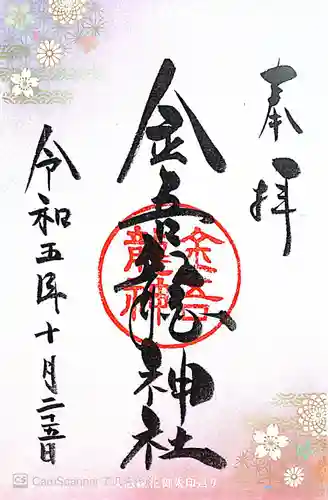 奉拝
金吾龍神社
金吾
龍神
令和五年十月二十五日
CS CamScanner